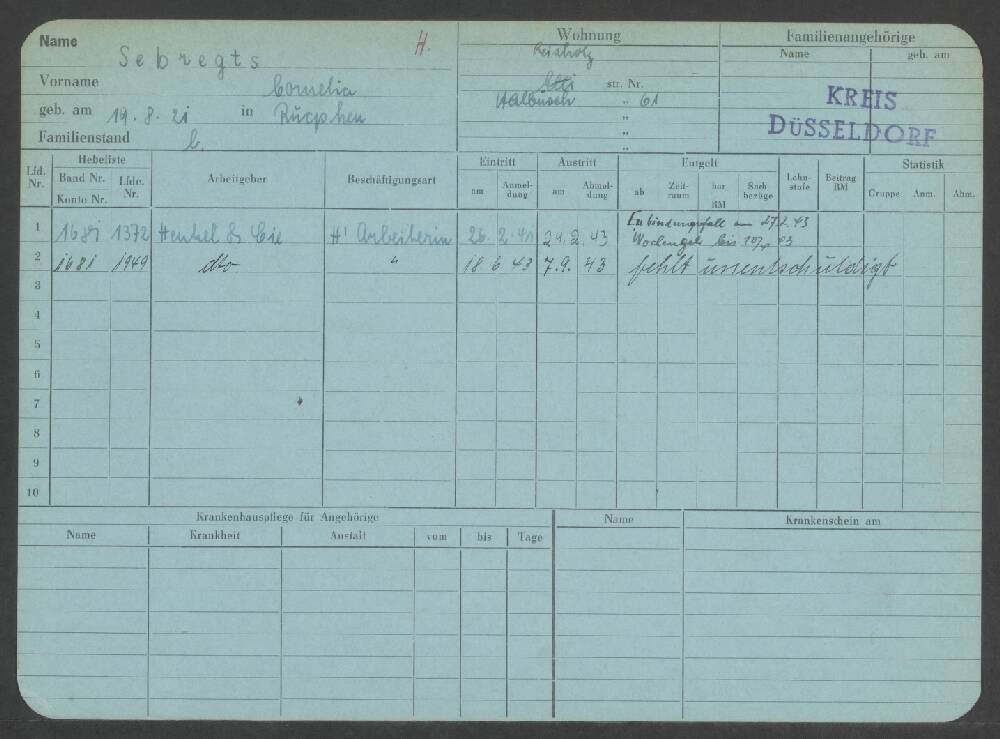 Name Sebregts H.
Vorname Cornelia
geb. am 19. 8. 21 in Rucphen
Familienstand
Wohnung
Reisholz
str. Nr.
" 61
"
"
Familienangehörige
Name geb. am
KREIS
DÜSSELDORF
Lfd. Nr. Hebeliste Arbeitgeber Beschäftigungsart Eintritt Austritt Entgelt Lohn-stufe Beitrag RM Statistik
Band Nr. Konto Nr. Lfde. Nr. am Anmel-dung am Abmel-dung ab Zeit-raum bar RM Sach bezüge Gruppe Anm. Abm.
1 1681 1372 Henkel & Cie H' Arbeiterin 26. 2. 41 24. 2. 43 Entbindungsfall am 27.2.43
Wochengeld bis 43
2 1681 1949 dto " 18 6 43 7. 9. 43 fehlt unentschuldigt
3
4
5
6
7
8
9
10
Krankenhauspflege für Angehörige
Name Krankheit Anstalt vom bis Tage
Name Krankenschein am